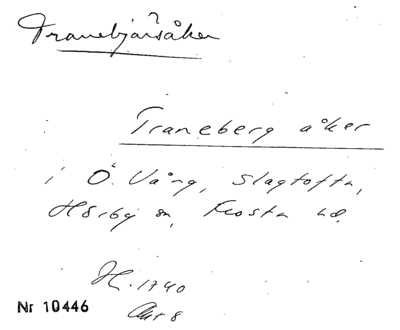 ?
Tranebjärsåker
Traneberg åker
i Ö. Vång, Slagtofta,
Hörby sn, Frosta hd.
H. 1740
Akt 8
Nr 10446